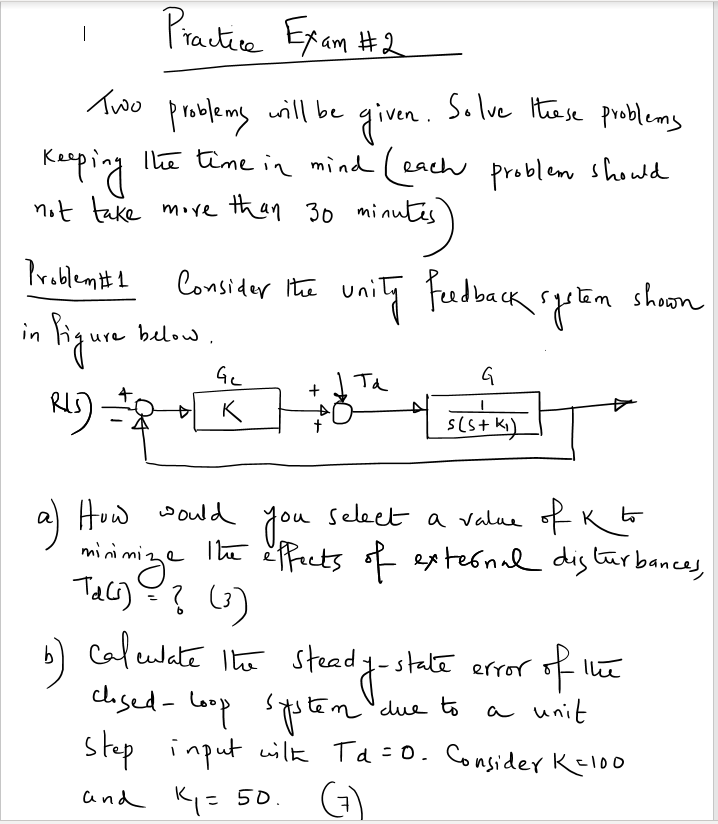 Practice Exam #2
Two problems will be given. Solve these problems
keeping the time in mind (each problem should
not take more than 30 minutes)
Problem#1 Consider the unity feedback system shown
in figure below.
Gc + Td G
R(s) + - K + 1/(s(s+K1))
a) How would you select a value of K to
minimize the effects of external disturbances,
Td(s) = ? (3)
b) Calculate the steady-state error of the
closed-loop system due to a unit
step input with Td = 0. Consider K=100
and K1 = 50. (7)